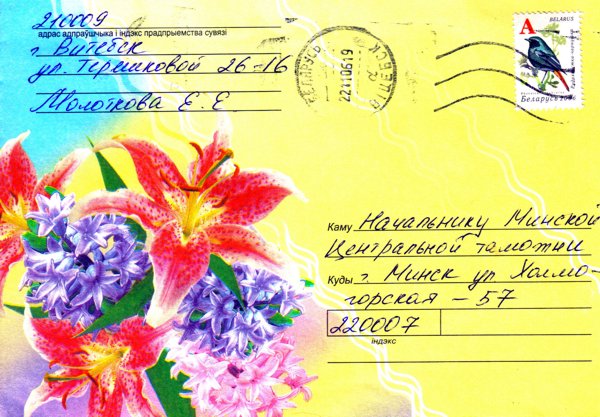 210009
адрас адпраўшчыка і індэкс прадпрыемства сувязі
г. Витебск
ул. Терешковой 26-16
Молоткова Е. Е
A
BELARUS
Беларусь
БЕЛАРУСЬ
221106 19
Каму Начальнику Минской
Центральной таможни
Куды г. Минск ул Холмо-
горская - 57
220007
індэкс